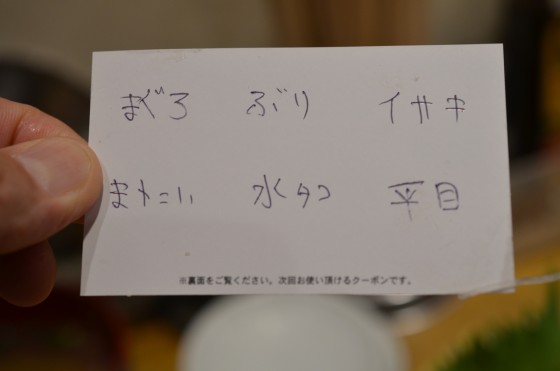 まぐろ ぶり イサキ
まだい 水タコ 平目
※裏面をご覧ください。次回お使い頂けるクーポンです。